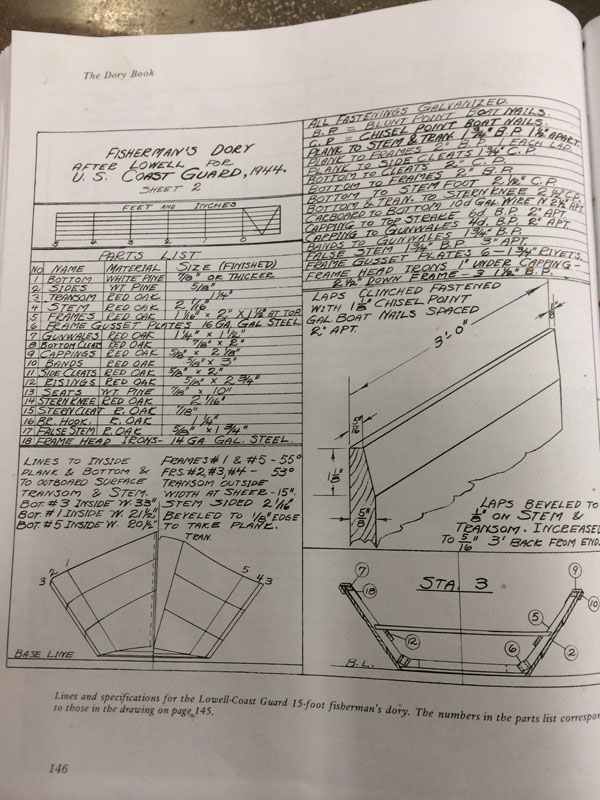 The Dory Book
FISHERMAN'S DORY
AFTER LOWELL FOR
U.S. COAST GUARD, 1944.
SHEET 2
FEET AND INCHES
5 4 3 2 1 0
PARTS LIST
NO NAME MATERIAL SIZE (FINISHED)
1 BOTTOM WHITE PINE 7/8" OR THICKER
2 SIDES WT PINE 5/8"
3 TRANSOM RED OAK 1 1/4"
4 STEM RED OAK 2 1/16"
5 FRAMES RED OAK 1 1/16" X 2" X 1 1/2" AT TOP
6 FRAME GUSSET PLATES 16 GA. GAL STEEL
7 GUNWALES RED OAK 1 1/4" X 1 1/2"
8 BOTTOM CLEATS RED OAK 7/8" X 2"
9 CAPPINGS RED OAK 3/8" X 2 1/8"
10 BANDS RED OAK 5/8" X 3"
11 SIDE CLEATS RED OAK 5/8" X 2"
12 RISINGS RED OAK 5/8" X 2 3/4"
13 SEATS WT PINE 7/8" X 10"
14 STERN KNEE RED OAK 2 1/16"
15 STERN CLEAT R. OAK 7/8"
16 BR. HOOK. R. OAK 1 1/4"
17 FALSE STEM R. OAK 5/8" X 1 3/4"
18 FRAME HEAD IRONS - 14 GA GAL. STEEL.
LINES TO INSIDE
PLANK & BOTTOM &
TO OUTBOARD SURFACE
TRANSOM & STEM.
BOT. #3 INSIDE W. 33"
BOT. #1 INSIDE W. 21 1/2"
BOT. #5 INSIDE W. 20 1/2"
FRAMES #1 & #5 - 55°
FRS. #2, #3, #4 - 53°
TRANSOM OUTSIDE
WIDTH AT SHEER - 15".
STEM SIDED 2 1/16"
BEVELED TO 1/8" EDGE
TO TAKE PLANK.
TRAN.
3 2 1 5 4 3
BASE LINE
ALL FASTENINGS GALVANIZED.
B.P. = BLUNT POINT BOAT NAILS.
C.P. = CHISEL POINT BOAT NAILS.
PLANK TO STEM & TRAN. 1 3/4" B.P. 1 1/2" APART.
PLANK TO FRAMES 2" B.P. 1 EACH LAP.
PLANK TO SIDE CLEATS 1 3/4" C.P.
BOTTOM TO CLEATS 2" C.P.
BOTTOM TO FRAMES 2" B.P.
BOTTOM TO STEM FOOT 2 1/2" C.P.
BOTTOM & TRAN. TO STERN KNEE 2 1/2" C.P.
GARBOARD TO BOTTOM 10d GAL. WIRE N 2 1/2" APT.
CAPPING TO TOP STRAKE 6d B.P. 2" APT.
CAPPING TO GUNWALES 4d B.P. 2" APT.
BANDS TO GUNWALES 1 3/4" B.P.
FALSE STEM 1 3/4" B.P. 3" APT.
FRAME GUSSET PLATES 6 - 1 3/4" RIVETS.
FRAME HEAD IRONS 1" UNDER CAPPING -
2 1/2" DOWN FRAME - 3 1 1/8" B.P.
LAPS CLINCHED FASTENED
WITH 1 1/8" CHISEL POINT
GAL BOAT NAILS SPACED
2" APT.
3'-0"
1/8"
5/16
1 1/8"
5/8"
LAPS BEVELED TO
1/8" ON STEM &
TRANSOM. INCREASED
TO 5/16" 3' BACK FROM ENDS
STA. 3
7
18
9
10
5
12
6
2
B.L.
Lines and specifications for the Lowell-Coast Guard 15-foot fisherman's dory. The numbers in the parts list correspon
to those in the drawing on page 145.
146